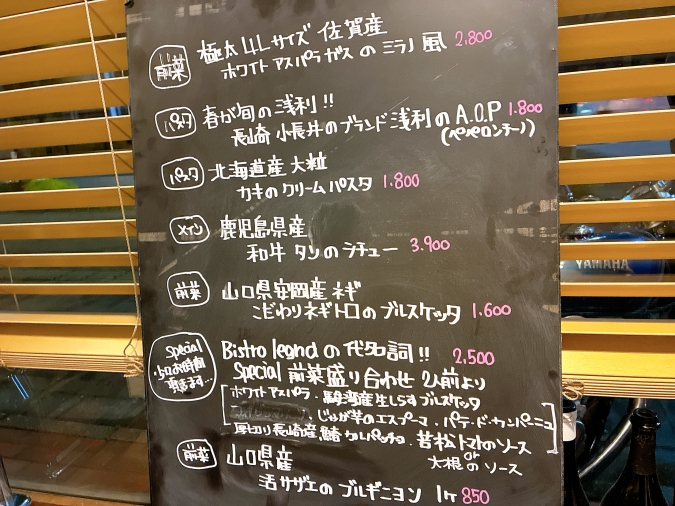 前菜 極太4Lサイズ 佐賀産
ホワイトアスパラガスのミラノ風 2,800
パスタ 春が旬の浅利!!
長崎 小長井のブランド浅利のA.O.P 1.800
(ペペロンチーノ)
パスタ 北海道産 大粒
カキのクリームパスタ 1.800
メイン 鹿児島県産
和牛 タンのラチュー 3.900
前菜 山口県安岡産 ネギ
こだわりネギトロのブルスケッタ 1.600
Special
お時間
頂きます...
Bistro leandの代名詞!! 2,500
Special 前菜盛り合わせ 2人前より
ホワイトアスパラ・駿河産生しらすブルスケッタ
じゃが芋のエスプーマ・パテ・ド・カンパーニュ
厚切り長崎産鰆カルパッチョ・若松トマトのソース
or
大根のソース
前菜 山口県産
活サザエのブルギニヨン 1ヶ 850
YAMAHA